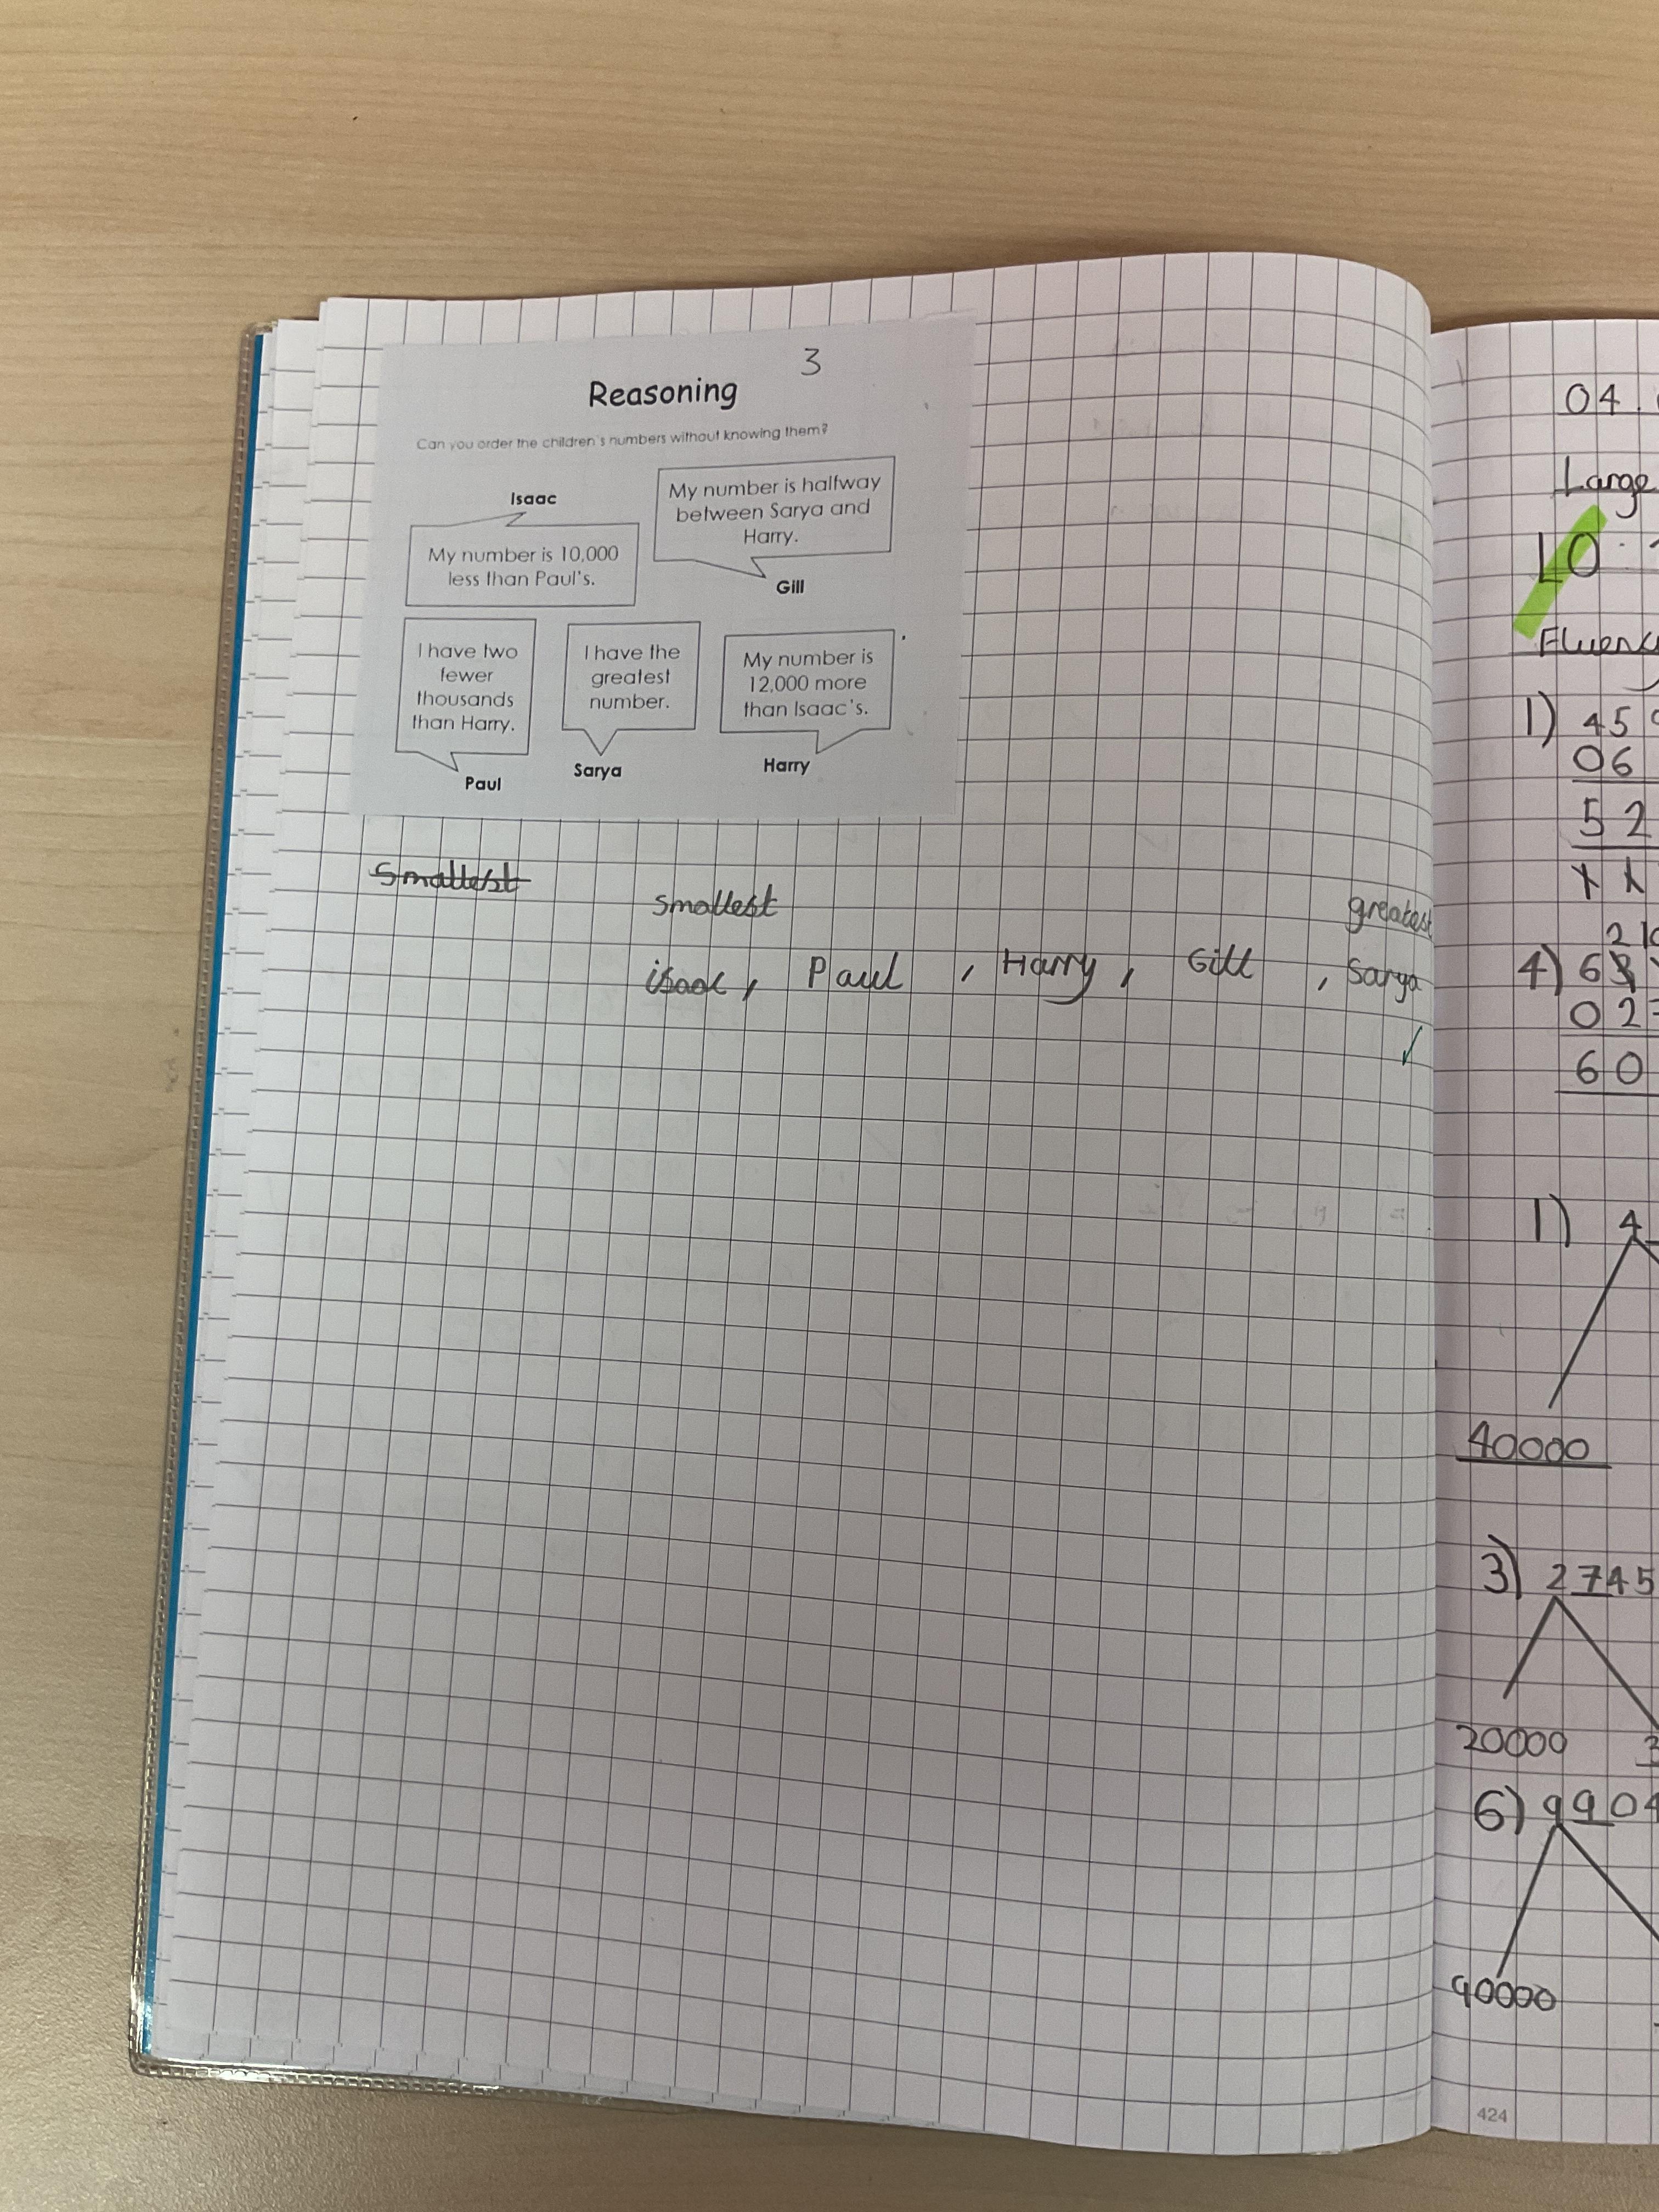 3
Reasoning
Can you order the children's numbers without knowing them?
Isaac
My number is 10,000
less than Paul's.
My number is halfway
between Sarya and
Harry.
Gill
I have two
fewer
thousands
than Harry.
Paul
I have the
greatest
number.
Sarya
My number is
12,000 more
than Isaac's.
Harry
Smallest
smallest
greatest
isaac, Paul, Harry, Gill, Sarya
04.
Large
LO
Fluency
1) 45
06
52
4) 63
02
60
1) 4
40000
3) 2745
20000 3
6) 9904
90000
424